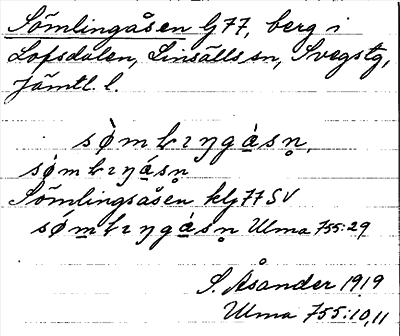 Sömlingåsen G 77, berg i
Lofsdalen, Linsälls sn, Svegs tg,
Jämtl. l.
sø̀mlɩŋgàsn̥,
sǿmlɩŋásn̥
Sömlingsåsen kG 77 SV
sǿmlɩŋgàsn̥ Ulma 755:29
S. Åsander 1919
Ulma 755:10,11